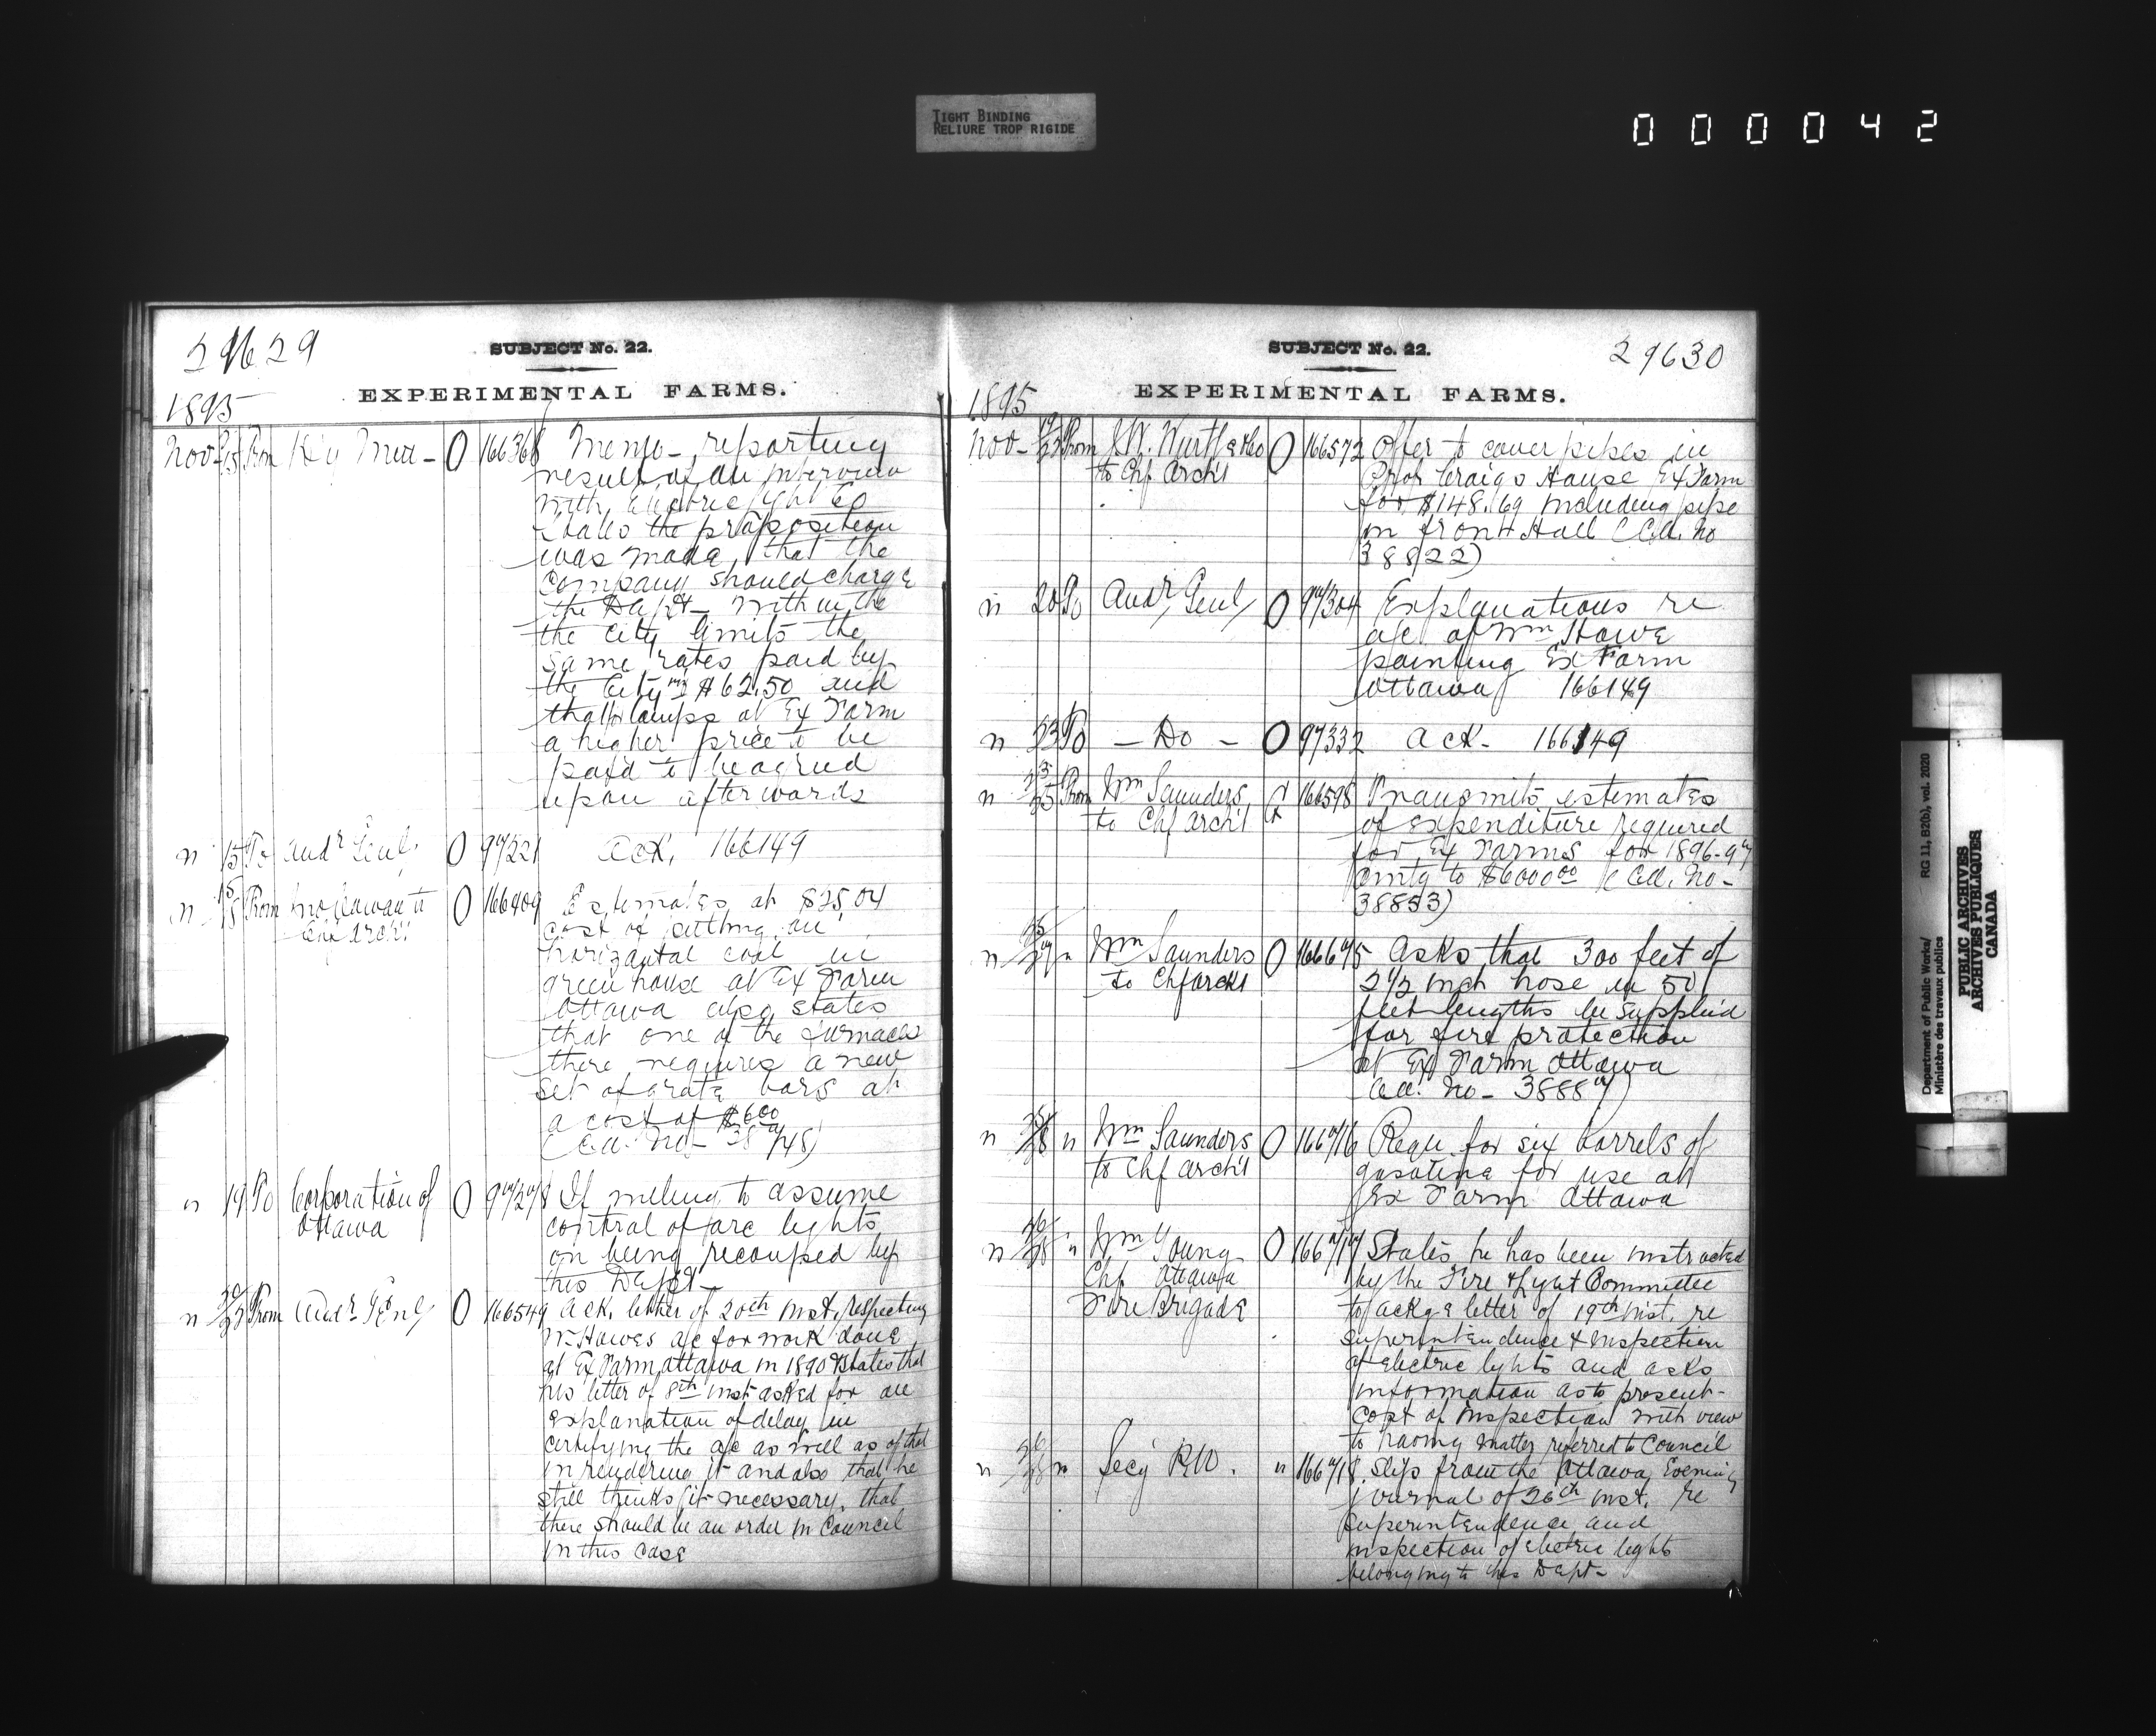 TIGHT BINDING
RELIURE TROP RIGIDE
000042
29629
SUBJECT No. 22.
EXPERIMENTAL FARMS.
1895
Nov 15 From Dy Min - O 166368 Memo - reporting
result of an interview
with Electric light Co
States the proposition
was made, that the
Company should charge
the Dept - within the
the City limits the
same rates paid by
the City viz $62.50 and
that for lamps at Ex Farm
a higher price to be
paid to be agreed
upon afterwards
" 15 To Audr Genl, O 97221 Ack, 166149
" 15/18 From Jno Cowan to O 166409 Estimates at $25,04
Chf Archt
cost of putting an
horizontal coil in
green house at Ex Farm
Ottawa also states
that one of the furnaces
there requires a new
set of grate bars at
a cost of $6.00
(C.A. No - 38748)
" 19 To Corporation of O 97278 If willing to assume
Ottawa
control of arc lights
on being recouped by
this Dept -
" 20/22 From Audr Genl O 166549 Ack. letter of 20th inst, respecting
W. Howes a/c for work done
at Ex Farm, Ottawa in 1890 & states that
his letter of 8th inst asked for an
explanation of delay in
certifying the a/c as well as of that
in rendering it and also that he
still thinks it necessary, that
there should be an order in Council
in this case
SUBJECT No. 22.
29630
EXPERIMENTAL FARMS.
1895
Nov - 19/23 From J.W. & Co O 166572 Offer to cover pipes in
to Chf Archt
Prof Craigs House Ex Farm
for $148.69 including pipe
in front Hall (C.A. No
38822)
" 20 To Audr Genl, O 97304 Explanations re
a/c of Wm Howe
painting Ex Farm
Ottawa 166149
" 23 To - Do - O 97332 Ack - 166149
" 23/25 From Wm Saunders, 166598 Transmits estimates
to Chf Archt
of expenditure required
for Ex Farms for 1896-97
amtg to $6000.00 (C.A. No -
38853)
" 25/27 " Wm Saunders O 166675 Asks that 300 feet of
to Chf Archt
2 1/2 inch hose in 50
feet lengths be supplied
for fire protection
at Ex Farm Ottawa
C.A. No - 38887)
" 25/28 " Wm Saunders O 166716 Requ. for six barrels of
to Chf Archt
gasoline for use at
Ex Farm Ottawa
" 26/28 " Wm Young O 166717 States he has been instructed
Chf Ottawa
by the Fire & Light Committee
Fire Brigade
to ackge letter of 19th inst. re
superintendence & inspection
of electric lights and asks
information as to present -
cost of inspection with view
to having matter referred to Council
" 26/28 " Secy P.W. " 166718 Slip from the Ottawa Evening
Journal of 26th inst. re
superintendence and
inspection of electric lights
belonging to this Dept -
Department of Public Works/ RG 11, B2(b), vol. 2020
Ministère des travaux publics
PUBLIC ARCHIVES
ARCHIVES PUBLIQUES
CANADA